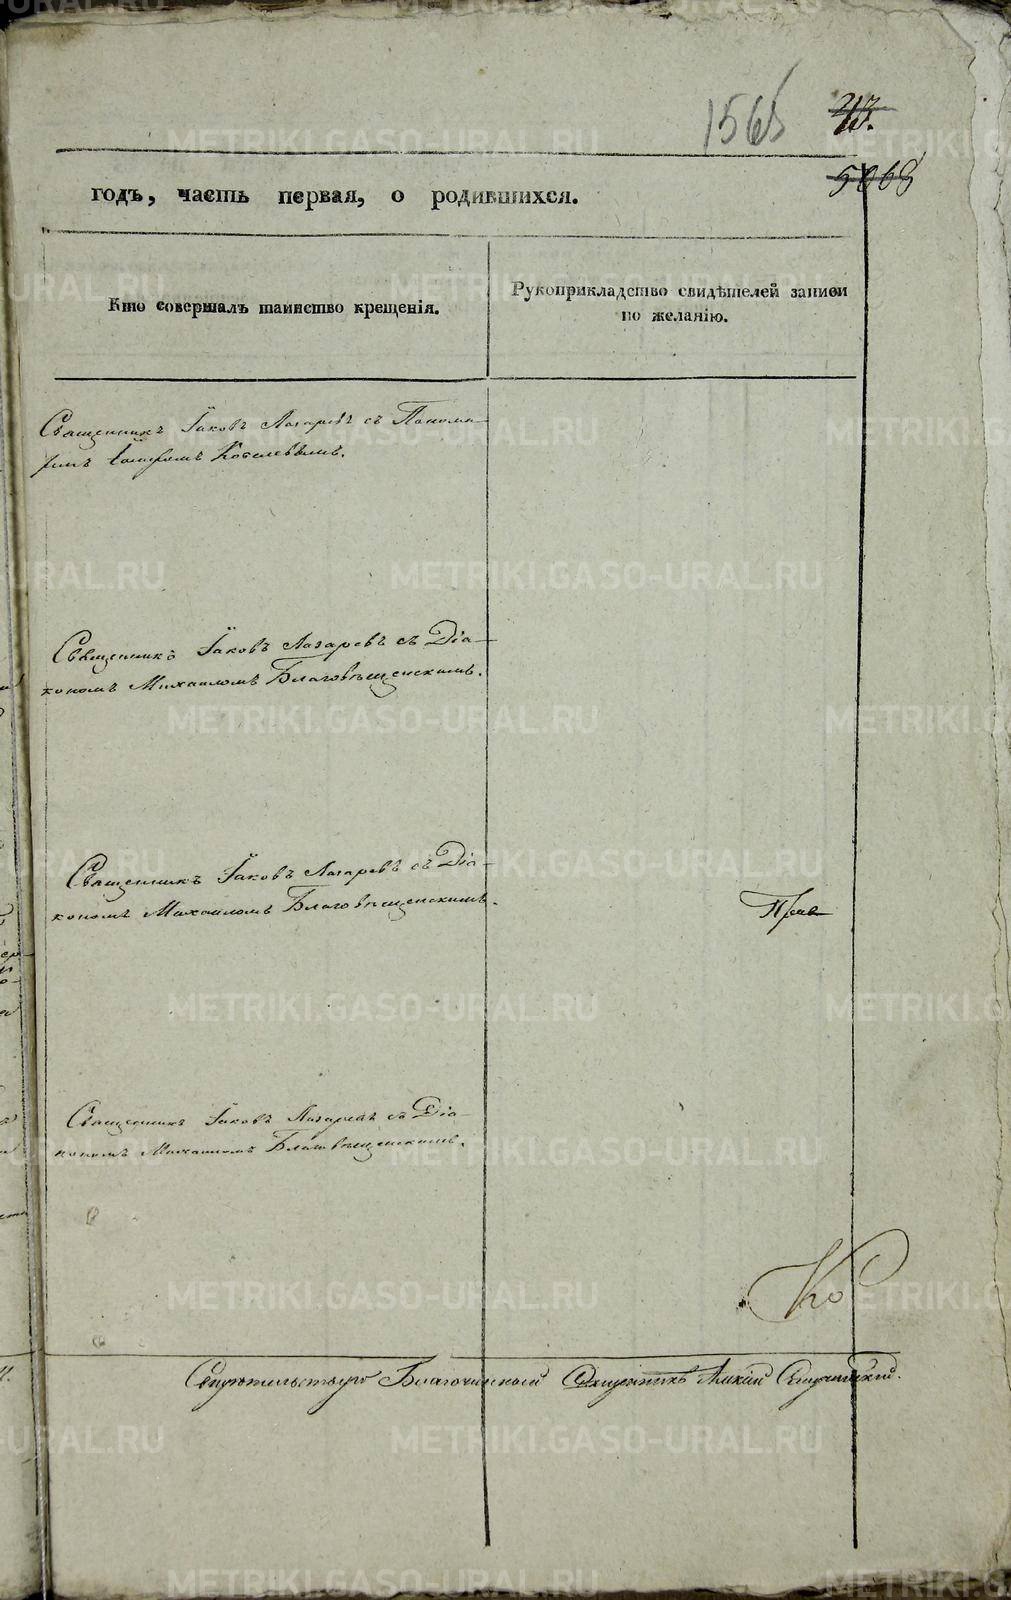 1565
5068
годъ, часть первая, о родившихся.
Кто совершалъ таинство крещенія.
Рукоприкладство свидѣтелей записи
по желанію.
Священникъ Іаковъ Лазаревъ съ Понома-
ремъ
Священникъ Іаковъ Лазаревъ съ Діа-
кономъ Михаиломъ Благовѣщенскимъ.
Священникъ Іаковъ Лазаревъ съ Діа-
кономъ Михаиломъ Благовѣщенскимъ.
Священникъ Іаковъ Лазаревъ съ Діа-
кономъ Михаиломъ Благовѣщенскимъ.
Свидѣтельствую Благочинный Священникъ
METRIKI.GASO-URAL.RU